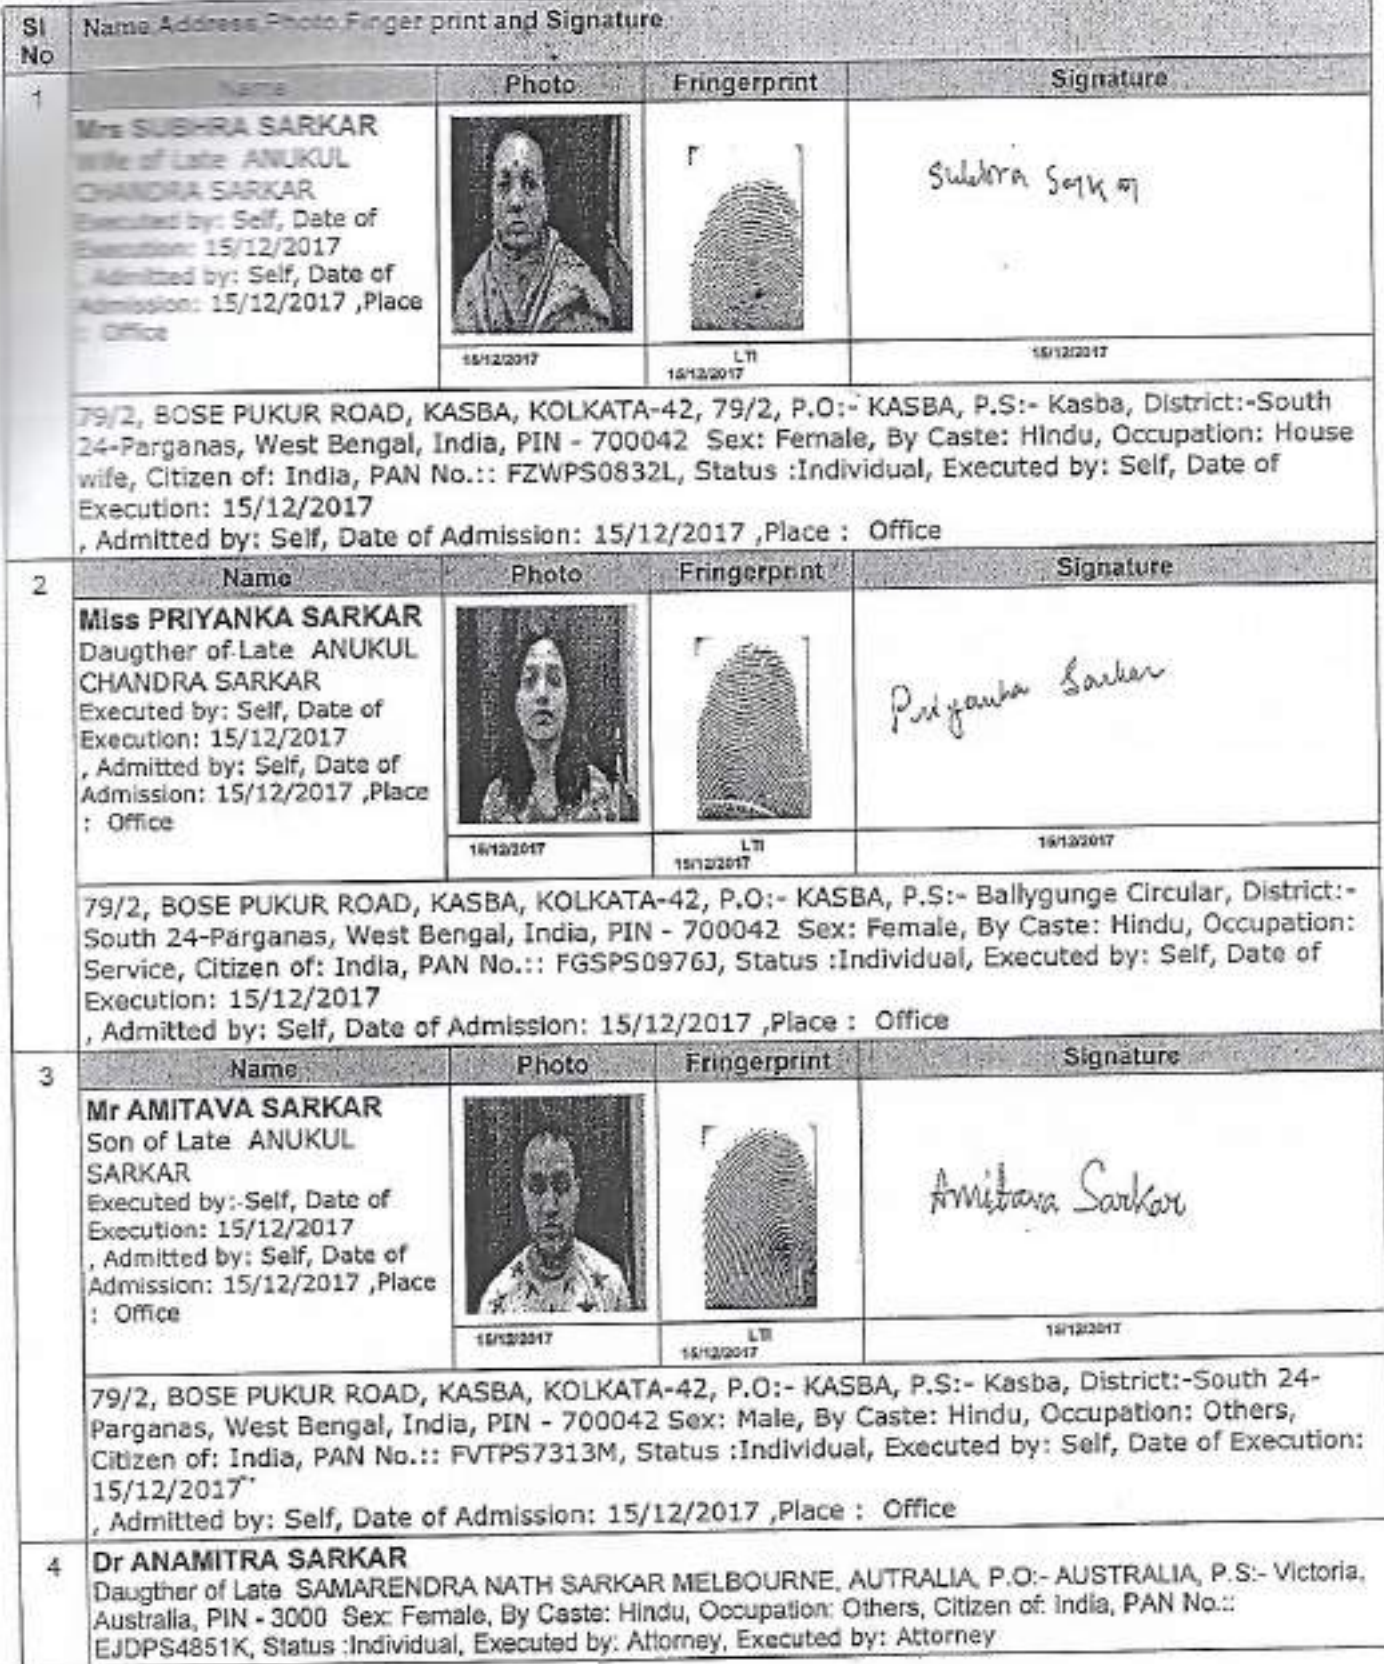 Sl No
Name Address Photo Finger print and Signature
1
Name Photo Fringerprint Signature
Mrs SUBHRA SARKAR
Wife of Late ANUKUL
CHANDRA SARKAR
Executed by: Self, Date of
Execution: 15/12/2017
, Admitted by: Self, Date of
Admission: 15/12/2017 ,Place
: Office
Subhra Sarkar
15/12/2017 LTI 15/12/2017
15/12/2017
79/2, BOSE PUKUR ROAD, KASBA, KOLKATA-42, 79/2, P.O:- KASBA, P.S:- Kasba, District:-South
24-Parganas, West Bengal, India, PIN - 700042 Sex: Female, By Caste: Hindu, Occupation: House
wife, Citizen of: India, PAN No.:: FZWPS0832L, Status :Individual, Executed by: Self, Date of
Execution: 15/12/2017
, Admitted by: Self, Date of Admission: 15/12/2017 ,Place : Office
2
Name Photo Fringerprint Signature
Miss PRIYANKA SARKAR
Daugther of Late ANUKUL
CHANDRA SARKAR
Executed by: Self, Date of
Execution: 15/12/2017
, Admitted by: Self, Date of
Admission: 15/12/2017 ,Place
: Office
Priyanka Sarkar
15/12/2017 LTI 15/12/2017
15/12/2017
79/2, BOSE PUKUR ROAD, KASBA, KOLKATA-42, P.O:- KASBA, P.S:- Ballygunge Circular, District:-
South 24-Parganas, West Bengal, India, PIN - 700042 Sex: Female, By Caste: Hindu, Occupation:
Service, Citizen of: India, PAN No.:: FGSPS0976J, Status :Individual, Executed by: Self, Date of
Execution: 15/12/2017
, Admitted by: Self, Date of Admission: 15/12/2017 ,Place : Office
3
Name Photo Fringerprint Signature
Mr AMITAVA SARKAR
Son of Late ANUKUL
SARKAR
Executed by: Self, Date of
Execution: 15/12/2017
, Admitted by: Self, Date of
Admission: 15/12/2017 ,Place
: Office
Amitava Sarkar
15/12/2017 LTI 15/12/2017
15/12/2017
79/2, BOSE PUKUR ROAD, KASBA, KOLKATA-42, P.O:- KASBA, P.S:- Kasba, District:-South 24-
Parganas, West Bengal, India, PIN - 700042 Sex: Male, By Caste: Hindu, Occupation: Others,
Citizen of: India, PAN No.:: FVTPS7313M, Status :Individual, Executed by: Self, Date of Execution:
15/12/2017
, Admitted by: Self, Date of Admission: 15/12/2017 ,Place : Office
4
Dr ANAMITRA SARKAR
Daugther of Late SAMARENDRA NATH SARKAR MELBOURNE, AUTRALIA, P.O:- AUSTRALIA, P.S:- Victoria,
Australia, PIN - 3000 Sex: Female, By Caste: Hindu, Occupation: Others, Citizen of: India, PAN No.::
EJDPS4851K, Status :Individual, Executed by: Attorney, Executed by: Attorney